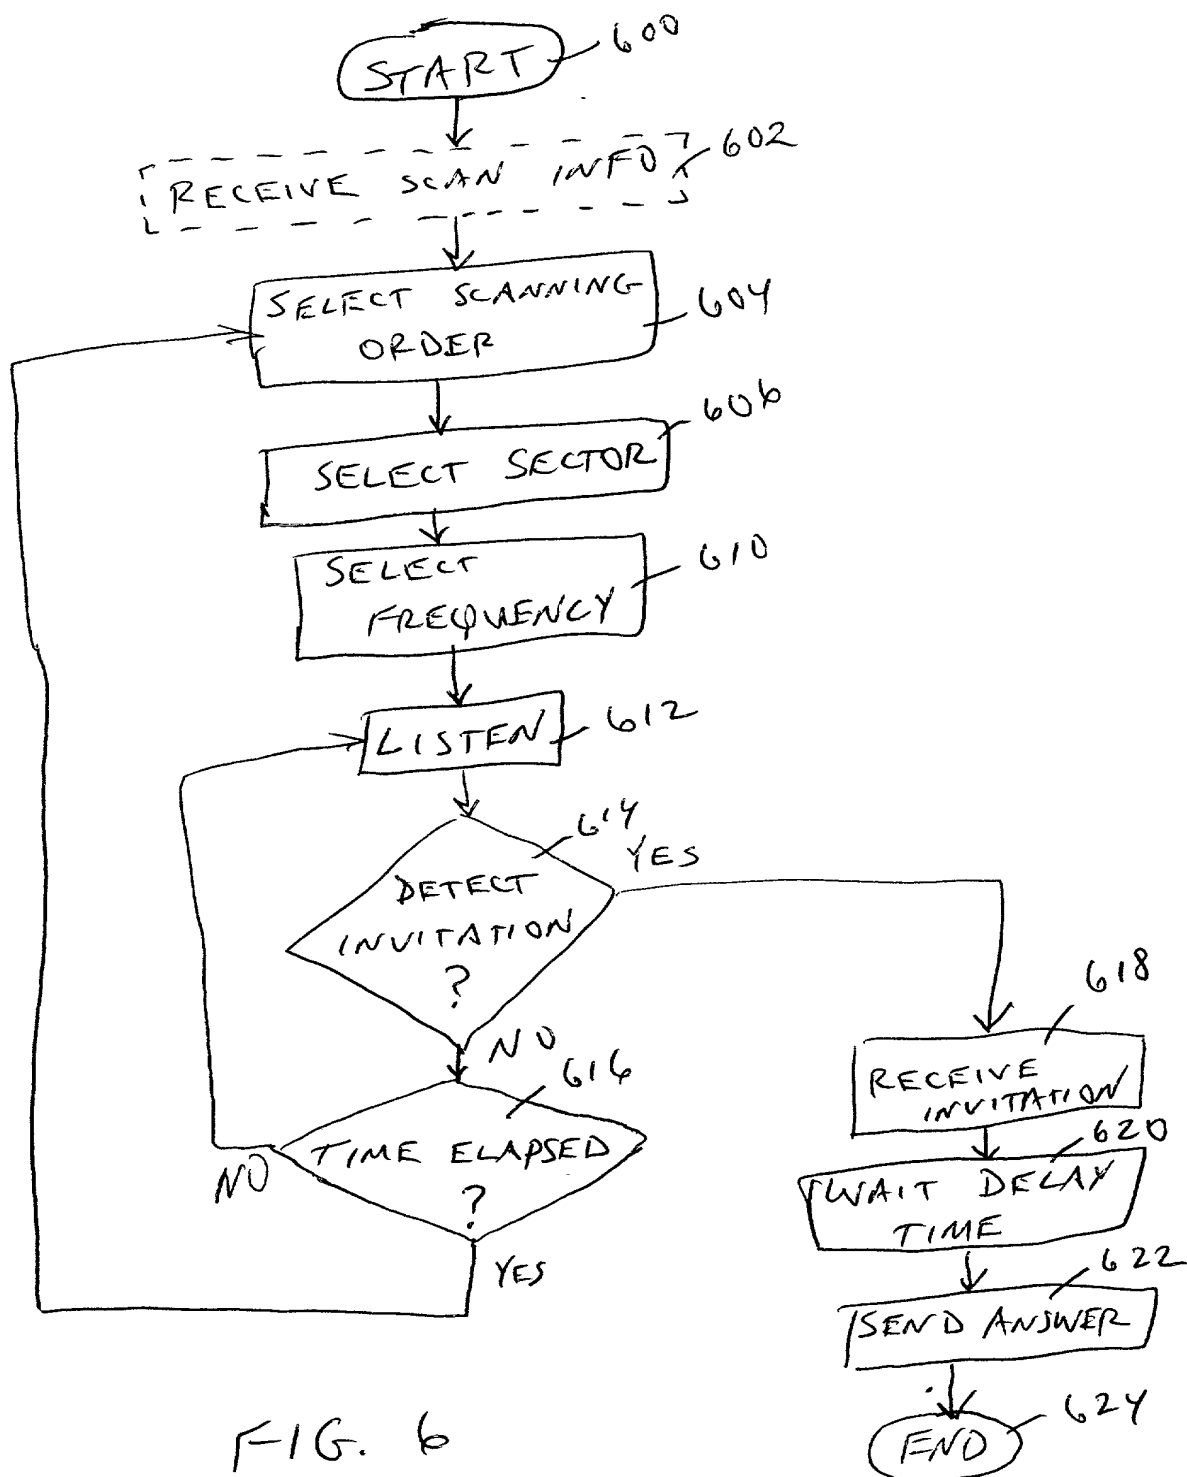 START
600
RECEIVE SCAN INFO
602
SELECT SCANNING
ORDER
604
SELECT SECTOR
606
SELECT
FREQUENCY
610
LISTEN
612
614
DETECT
INVITATION
?
YES
NO
616
TIME ELAPSED
?
NO
YES
618
RECEIVE
INVITATION
620
WAIT DELAY
TIME
622
SEND ANSWER
624
END
FIG. 6